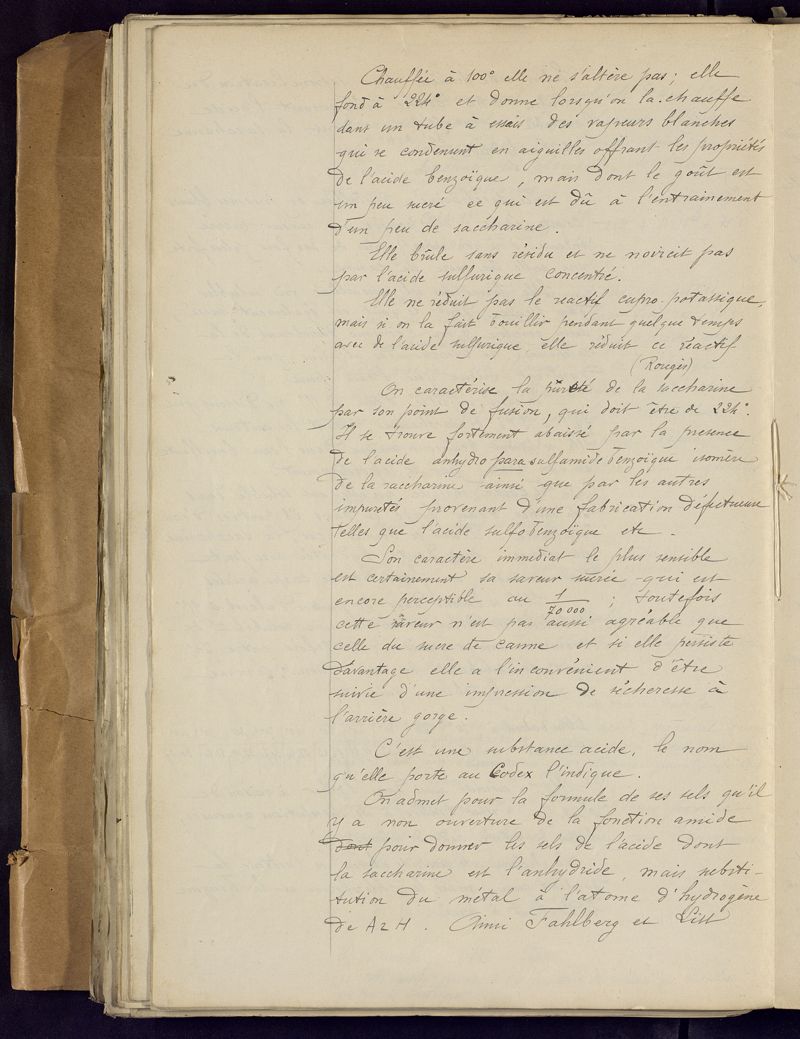 Chauffée à 100° elle ne s'altère pas ; elle
fond à 224° et donne lorsqu'on la chauffe
dans un tube à essais des vapeurs blanches
qui se condensent en aiguilles offrant les propriétés
de l'acide benzoïque, mais dont le goût est
un peu sucré ce qui est dû à l'entrainement
d'un peu de saccharine.
Elle brûle sans résidu et ne noircit pas
par l'acide sulfurique concentré.
Elle ne réduit pas le reactif cupro-potassique,
mais si on la fait bouillir pendant quelque temps
avec de l'acide sulfurique elle réduit ce réactif
(Rouges)
On caractérise la pureté de la saccharine
par son point de fusion, qui doit être de 224°.
Il se trouve fortement abaissé par la presence
de l'acide anhydro para sulfamide benzoïque isomère
de la saccharine ainsi que par les autres
impuretés provenant d'une fabrication défectueuse
telles que l'acide sulfobenzoïque etc.
Son caractère immediat le plus sensible
est certainement sa saveur sucrée qui est
encore perceptible au 1/70 000 ; toutefois
cette saveur n'est pas aussi agréable que
celle du sucre de canne et si elle persiste
davantage elle a l'inconvénient d'être
suivie d'une impression de sécheresse à
l'arrière gorge.
C'est une substance acide, le nom
qu'elle porte au Codex l'indique.
On admet pour la formule de ses sels qu'il
y a non ouverture de la fonction amide
dont pour donner les sels de l'acide dont
la saccharine est l'anhydride, mais substi-
tution du métal à l'atome d'hydrogène
de AzH. Ainsi Fahlberg et List